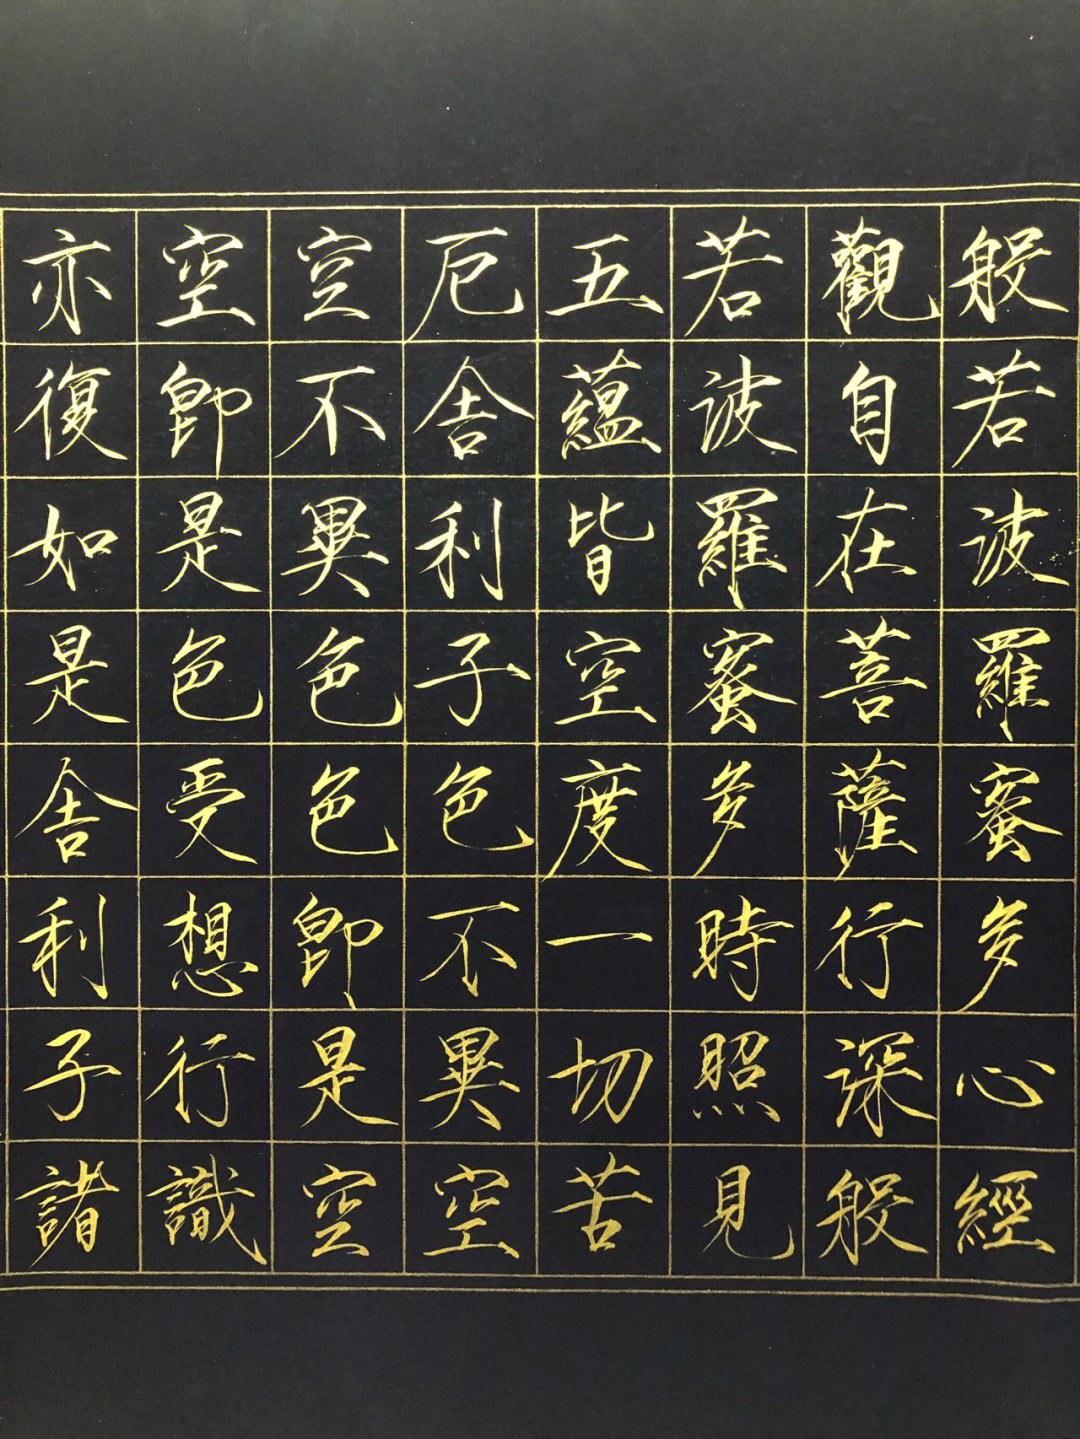 般若波羅蜜多心經
觀自在菩薩行深般
若波羅蜜多時照見
五蘊皆空度一切苦
厄舍利子色不異空
空不異色色即是空
空即是色受想行識
亦復如是舍利子諸